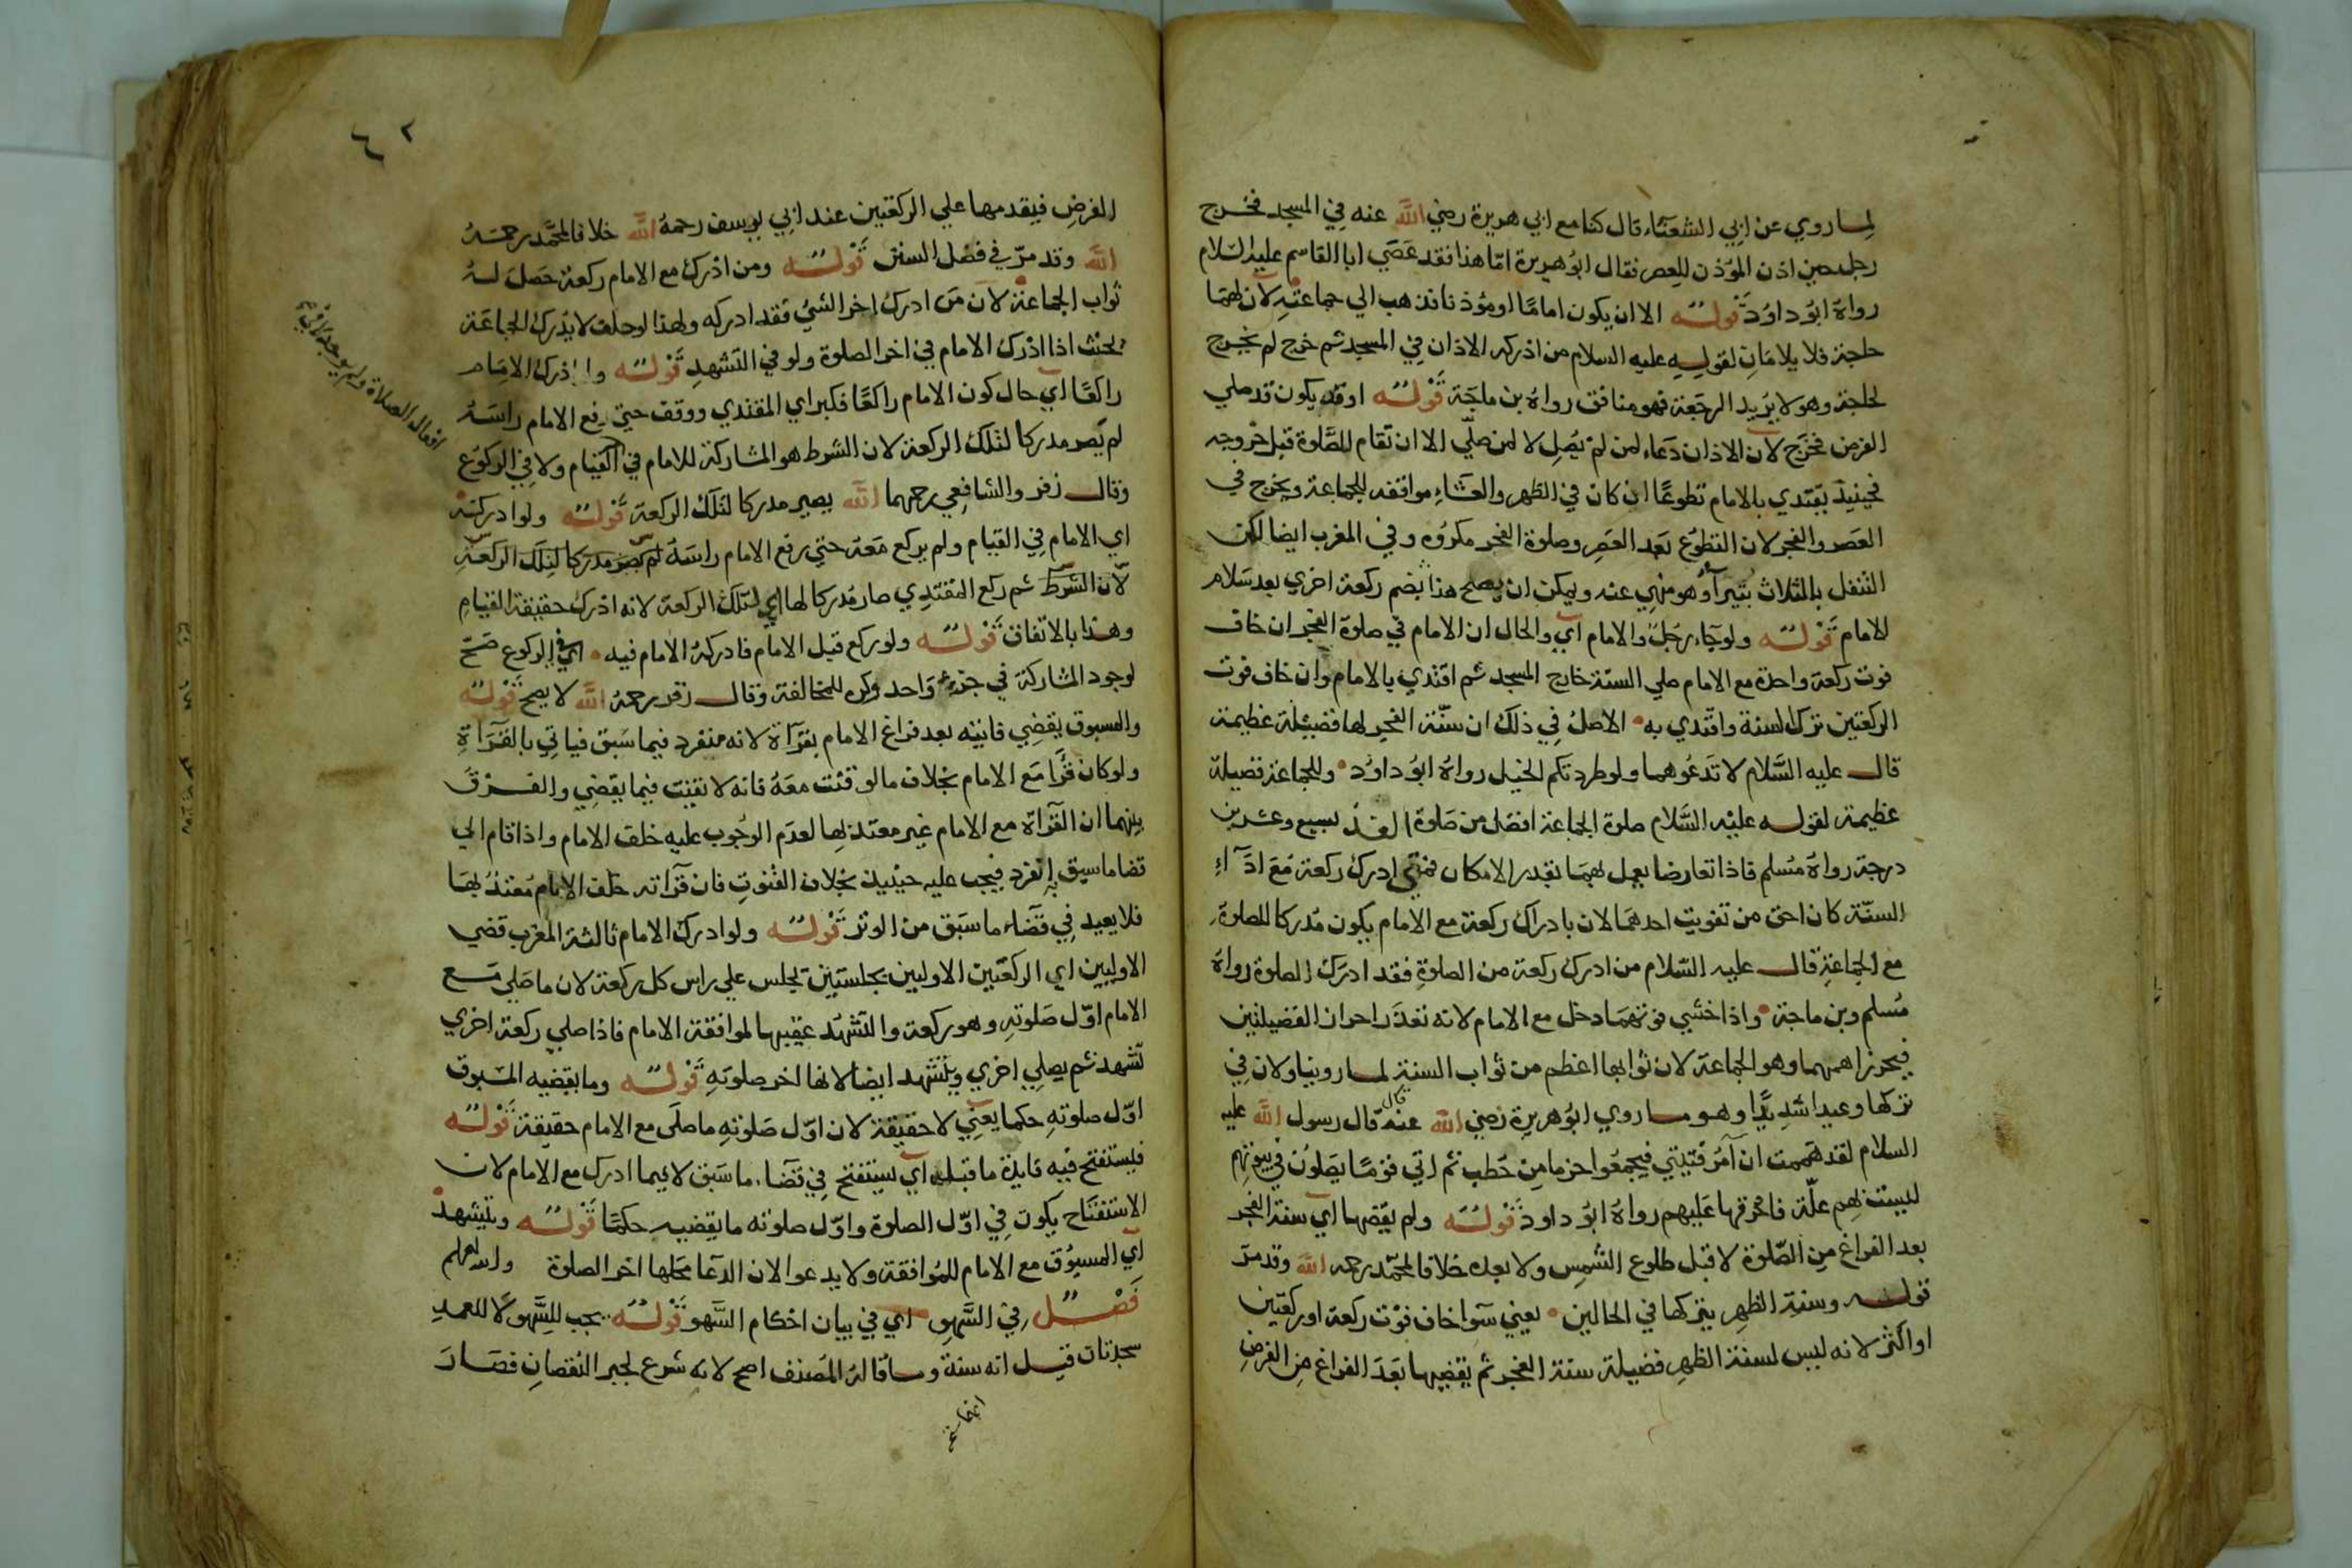 لما روي عن ابي الشعثاء قال كنا مع ابي هريرة رضي الله عنه في المسجد فخرج
رجل حين اذن المؤذن للعصر فقال ابو هريرة اما هذا فقد عصي ابا القاسم عليه السلام
رواه ابو داود قوله الا ان يكون اماما او مؤذنا فذهب الي جماعته لان لهما
حاجة فلا يلامان لقوله عليه السلام من ادركه الاذان في المسجد ثم خرج لم يخرج
لحاجة وهو لا يريد الرجعة فهو منافق رواه بن ماجة قوله او قد يكون قد صلي
الفرض فخرج لان الاذان دعاء لمن لم يصل لا لمن صلي الا ان تقام الصلوة قبل خروجه
فحينيذ يقتدي بالامام تطوعا ان كان في الظهر والعشاء موافقه للجماعة ويخرج في
العصر والفجر لان التطوع بعد العصر وصلوة الفجر مكروه وفي المغرب ايضا لكن
التنفل بالثلاث بتيراء وهو منهي عنه ويمكن ان يصلح هذا بضم ركعة اخري بعد سلام
الامام قوله ولو جاء رجل والامام اي والحال ان الامام في صلوة الفجر ان خاف
فوت ركعة واحدة مع الامام صلي السنة خارج المسجد ثم اقتدي بالامام وان خاف فوت
الركعتين ترك السنة واقتدي به الاصل في ذلك ان سنة الفجر لها فضيلة عظيمة
قال عليه السلام لا تدعوهما ولو طردتكم الخيل رواه ابو داود وللجماعة فضيلة
عظيمة لقوله عليه السلام صلوة الجماعة افضل من صلوة الفذ بسبع وعشرين
درجة رواه مسلم فاذا تعارضا يعمل بهما بقدر الامكان فمتي ادرك ركعة مع اداء
السنة كان احق من تفويت احدهما لان بادراك ركعة مع الامام يكون مدركا للصلوة
مع الجماعة قال عليه السلام من ادرك ركعة من الصلوة فقد ادرك الصلوة رواه
مسلم وبن ماجة واذا خشي فوتهما دخل مع الامام لانه تعذر احراز الفضيلتين
فيحرز اهمهما وهو الجماعة لان ثوابها اعظم من ثواب السنة لما روينا ولان في
تركها وعيدا شديدا وهو ما روي ابو هريرة رضي الله عنه قال قال رسول الله عليه
السلام لقد هممت ان آمر فتيتي فيجمعوا حزما من حطب ثم اتي قوما يصلون في بيوتهم
ليست بهم علة فاحرقها عليهم رواه ابو داود قوله ولم يقضها اي سنة الفجر
بعد الفراغ من الصلوة لا قبل طلوع الشمس ولا بعده خلافا لمحمد رحمه الله وقد مر
قوله وسنة الظهر يتركها في الحالين يعني سوا خاف فوت ركعة او ركعتين
او اكثر لانه ليس لسنة الظهر فضيلة سنة الفجر ثم يقضيها بعد الفراغ من الفرض
الفرض فيقدمها علي الركعتين عند ابي يوسف رحمه الله خلافا لمحمد رحمه
الله وقد مر في فصل السنن قوله ومن ادرك مع الامام ركعة حصل له
ثواب الجماعة لان من ادرك اخر الشي فقد ادركه ولهذا لو حلف لا يدرك الجماعة
يحنث اذا ادرك الامام في اخر الصلوة ولو في التشهد قوله ولو ادرك الامام
راكعا اي حال كون الامام راكعا فكبر اي المقتدي ووقف حتي رفع الامام راسه
لم يصر مدركا لتلك الركعة لان الشرط هو المشاركة للامام في القيام ولا في الركوع
وقال زفر والشافعي رحمهما الله يصير مدركا لتلك الركعة قوله ولو ادركته
اي الامام في القيام ولم يركع معه حتي رفع الامام راسه لم يصر مدركا لتلك الركعة
لان الشرط ثم ركع المقتدي صار مدركا لها اي لتلك الركعة لانه ادرك حقيقة القيام
وهذا بالاتفاق قوله ولو ركع قبل الامام فادركه الامام فيه اي في الركوع صح
لوجود المشاركة في جزء واحد وكره للمخالفة وقال زفر رحمه الله لا يصح قوله
والمسبوق يقضي فائتيه بعد فراغ الامام بقرآة لانه منفرد فيما سبق فياتي بالقرآة
ولو كان قرا مع الامام بخلاف ما لو قنت معه فانه لا يقنت فيما يقضي والفرق
بينهما ان القرآة مع الامام غير معتد بها لعدم الوجوب عليه خلف الامام واذا قام الي
قضا ما سبق به انفرد فيجب عليه حينيذ بخلاف القنوت فان قرآته خلف الامام معتد بها
فلا يعيد في قضاء ما سبق من الوتر قوله ولو ادرك الامام ثالثة المغرب قضي
الاوليين اي الركعتين الاوليين بجلستين يجلس علي راس كل ركعة لان ما صلي مع
الامام اول صلوته وهو ركعة والتشهد عقيبها لموافقة الامام فاذا صلي ركعة اخري
تشهد ثم يصلي اخري ويتشهد ايضا لانها اخر صلوته قوله وما يقضيه المسبوق
اول صلوته حكما يعني لا حقيقة لان اول صلوته ما صلي مع الامام حقيقة قوله
فيستفتح فيه فايدة ما قبله اي يستفتح في قضاء ما سبق لا فيما ادرك مع الامام لان
الاستفتاح يكون في اول الصلوة واول صلوته ما يقضيه حكما قوله ويتشهد
اي المسبوق مع الامام للموافقة ولا يدعو لان الدعا محلها اخر الصلاة والله اعلم
فصل في السهو اي في بيان احكام السهو قوله يجب للسهو لا للعمد
سجدتان قيل انه سنة وما قاله المصنف اصح لانه شرع لجبر النقصان فصار
افعال الصلاة ولم يوجد